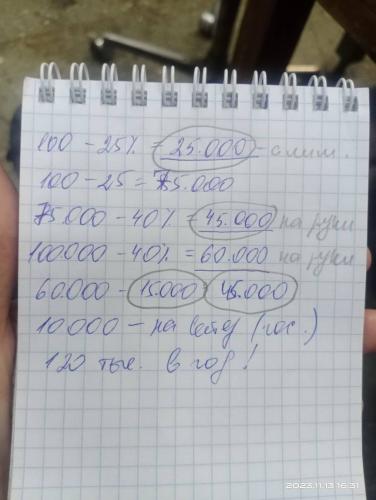 100 - 25% = 25.000 - алим.
100 - 25 = 75.000
75.000 - 40% = 45.000 на руки
100.000 - 40% = 60.000 на руки
60.000 - 15.000 = 45.000
10.000 - на (гос.)
120 тыс. в год!
2023.11.13 16:31